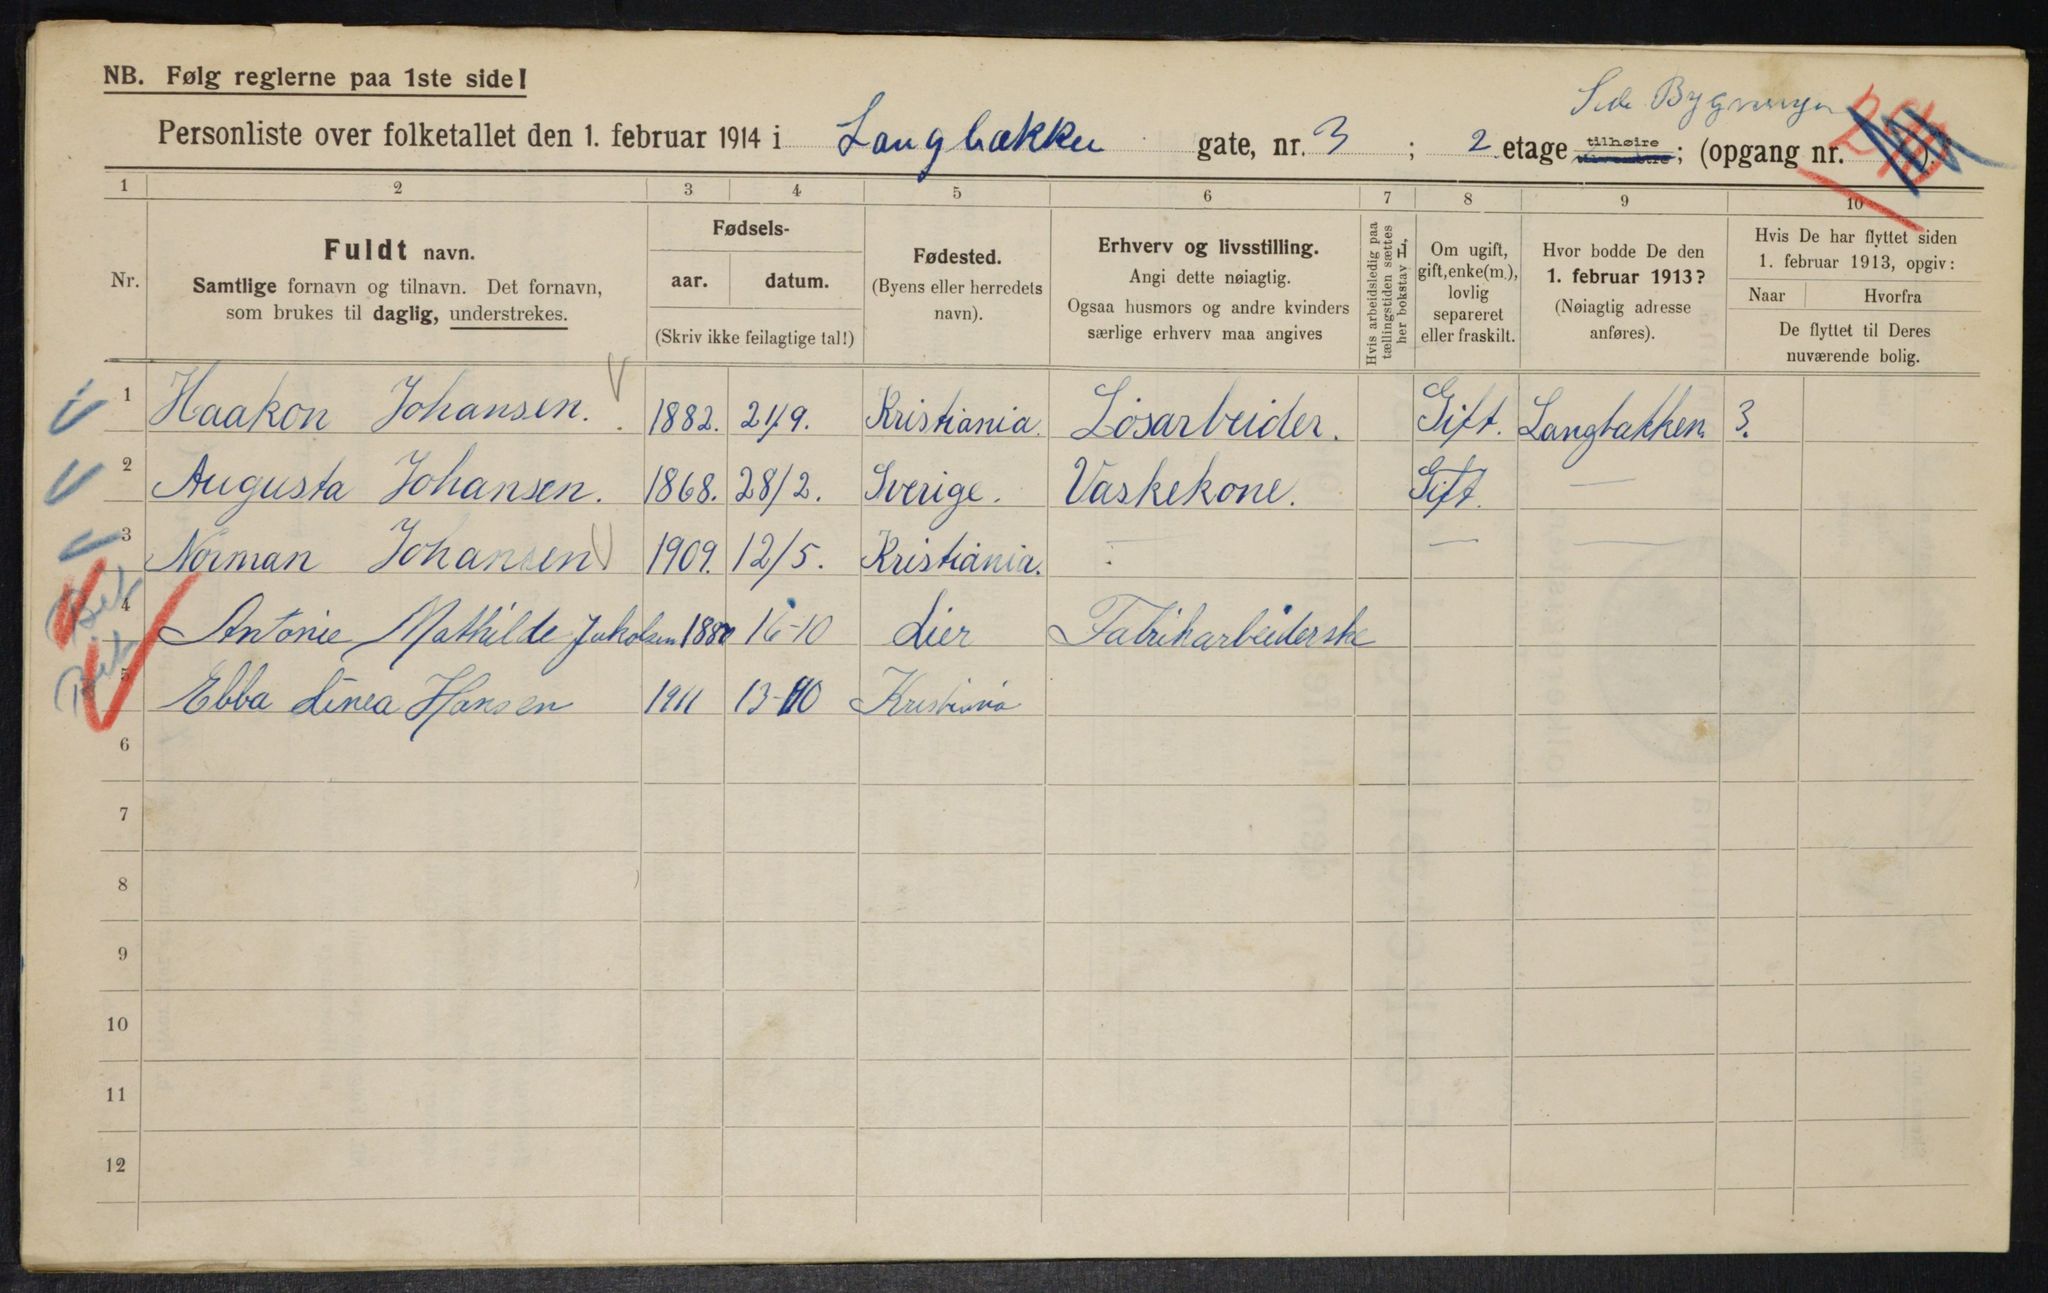 NB. Følg reglerne paa 1ste side!
Side Bygningen
Personliste over folketallet den 1. februar 1914 i Langbakken gate, nr. 3 ; 2 etage tilhøire ; (opgang nr. ).
1 2 3 4 5 6 7 8 9 10
Nr.
Fuldt navn.
Samtlige fornavn og tilnavn. Det fornavn,
som brukes til daglig, understrekes.
Fødsels-
aar. datum.
(Skriv ikke feilagtige tal!)
Fødested.
(Byens eller herredets
navn).
Erhverv og livsstilling.
Angi dette nøiagtig.
Ogsaa husmors og andre kvinders
særlige erhverv maa angives
Hvis arbeidsledig paa
tællingstiden sættes
her bokstav L.
Om ugift,
gift, enke(m.),
lovlig
separeret
eller fraskilt.
Hvor bodde De den
1. februar 1913?
(Nøiagtig adresse
anføres).
Hvis De har flyttet siden
1. februar 1913, opgiv:
Naar Hvorfra
De flyttet til Deres
nuværende bolig.
1 Haakon Johansen. 1882. 24/9. Kristiania. Løsarbeider. Gift. Langbakken. 3.
2 Augusta Johansen. 1868. 28/2. Sverige. Vaskekone. Gift. —
3 Norman Johansen 1909. 12/5. Kristiania. — — —
4 Antonie Mathilde Jakobsen 1880 16-10 Lier Fabrikarbeiderske
5 Ebba Linea Hansen 1911 13-10 Kristiania
6
7
8
9
10
11
12